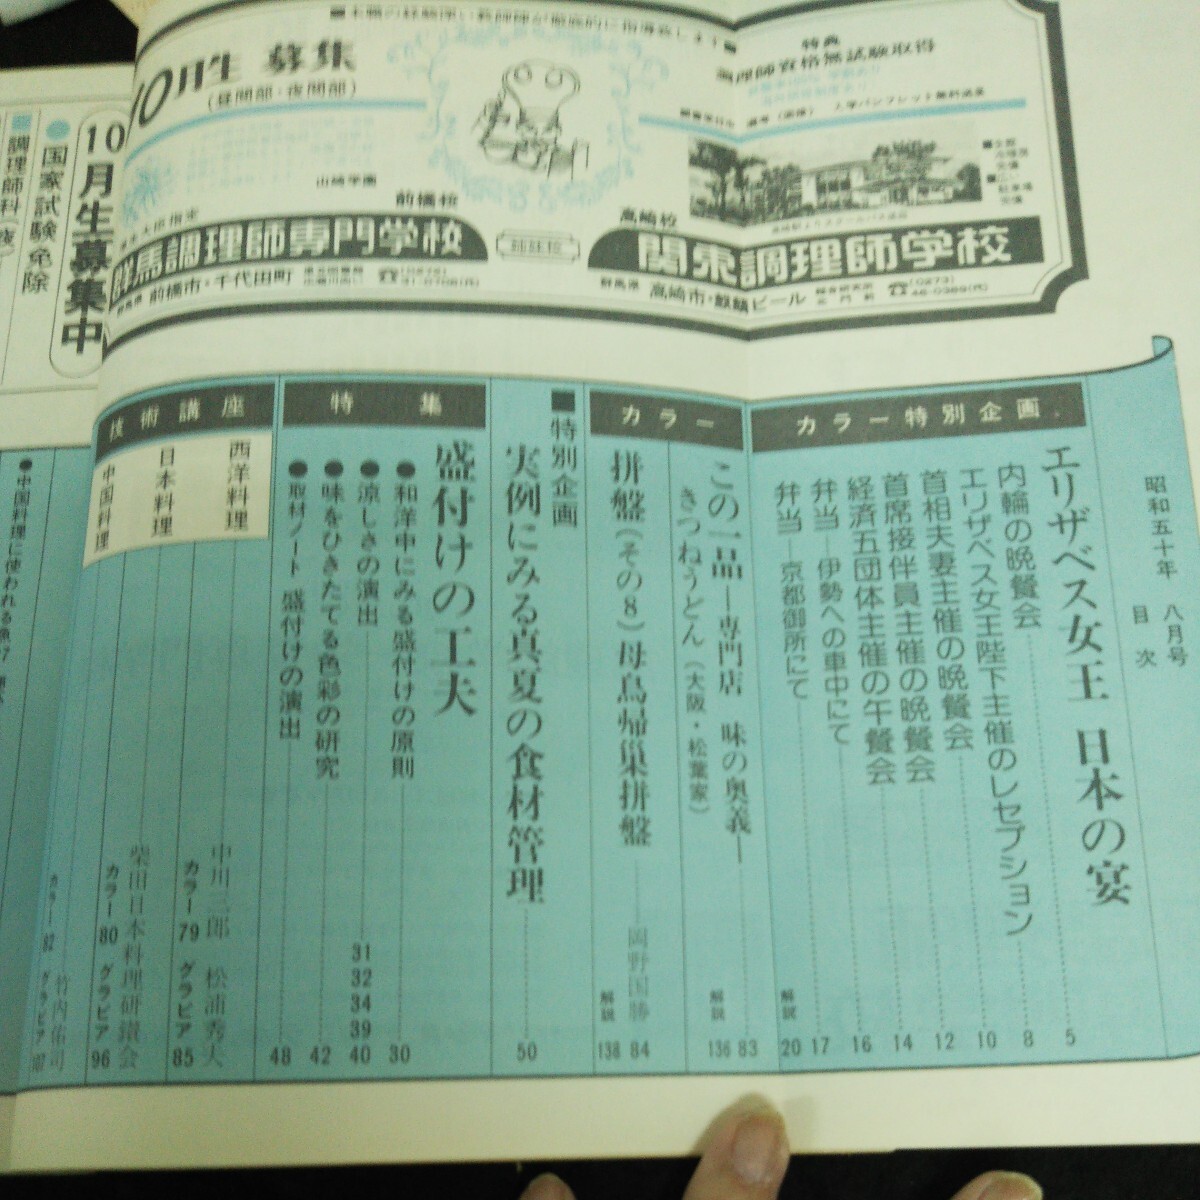 10月生 募集
(昼間部・夜間部)
特典
調理師資格無試験取得
山崎学園
前橋校
群馬調理師専門学校
群馬県 前橋市・千代田町
姉妹校
高崎校
関東調理師学校
群馬県 高崎市・麒麟ビール
10月生募集中
●国家試験免除
昭和五十年 八月号
目次
カラー特別企画
エリザベス女王 日本の宴 5
内輪の晩餐会 8
エリザベス女王陛下主催のレセプション 10
首相夫妻主催の晩餐会 12
首席接伴員主催の晩餐会 14
経済五団体主催の午餐会 16
弁当―伊勢への車中にて 17
弁当―京都御所にて 解説 20
カラー
この一品―専門店 味の奥義― 83
きつねうどん(大阪・松葉家) 解説 136
拼盤(その8)母鳥帰巣拼盤 岡野国勝 84
解説 138
■特別企画
実例にみる真夏の食材管理 50
特集
盛付けの工夫
●和洋中にみる盛付けの原則 30
●涼しさの演出 31 32 34 39 40
●味をひきたてる色彩の研究 42
●取材ノート 盛付けの演出 48
技術講座
西洋料理
中川二郎 松浦秀夫
カラー 79 グラビア 85
日本料理
柴田日本料理研鑽会
カラー 80 グラビア 96
中国料理
竹内佑司
カラー 82 グラビア
●中国料理に使われる